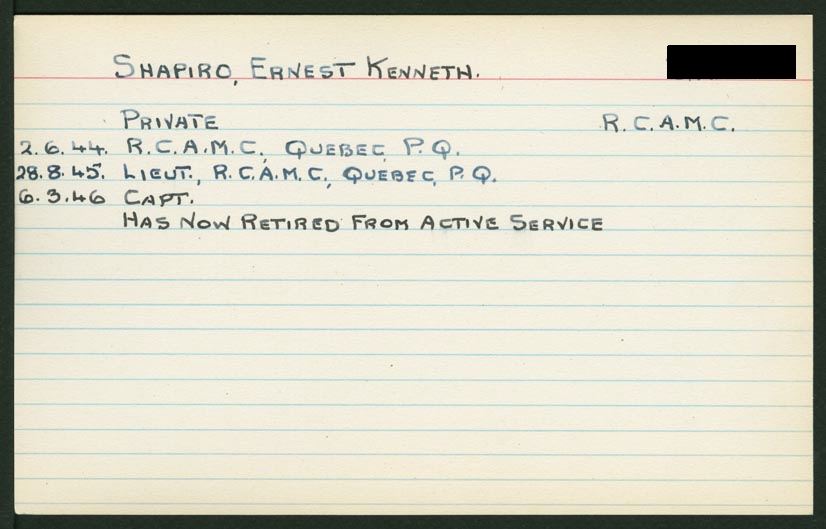 SHAPIRO, ERNEST KENNETH.
PRIVATE R.C.A.M.C.
2.6.44. R.C.A.M.C, QUEBEC, P.Q.
28.8.45. LIEUT., R.C.A.M.C, QUEBEC, P.Q.
6.3.46 CAPT.
HAS NOW RETIRED FROM ACTIVE SERVICE